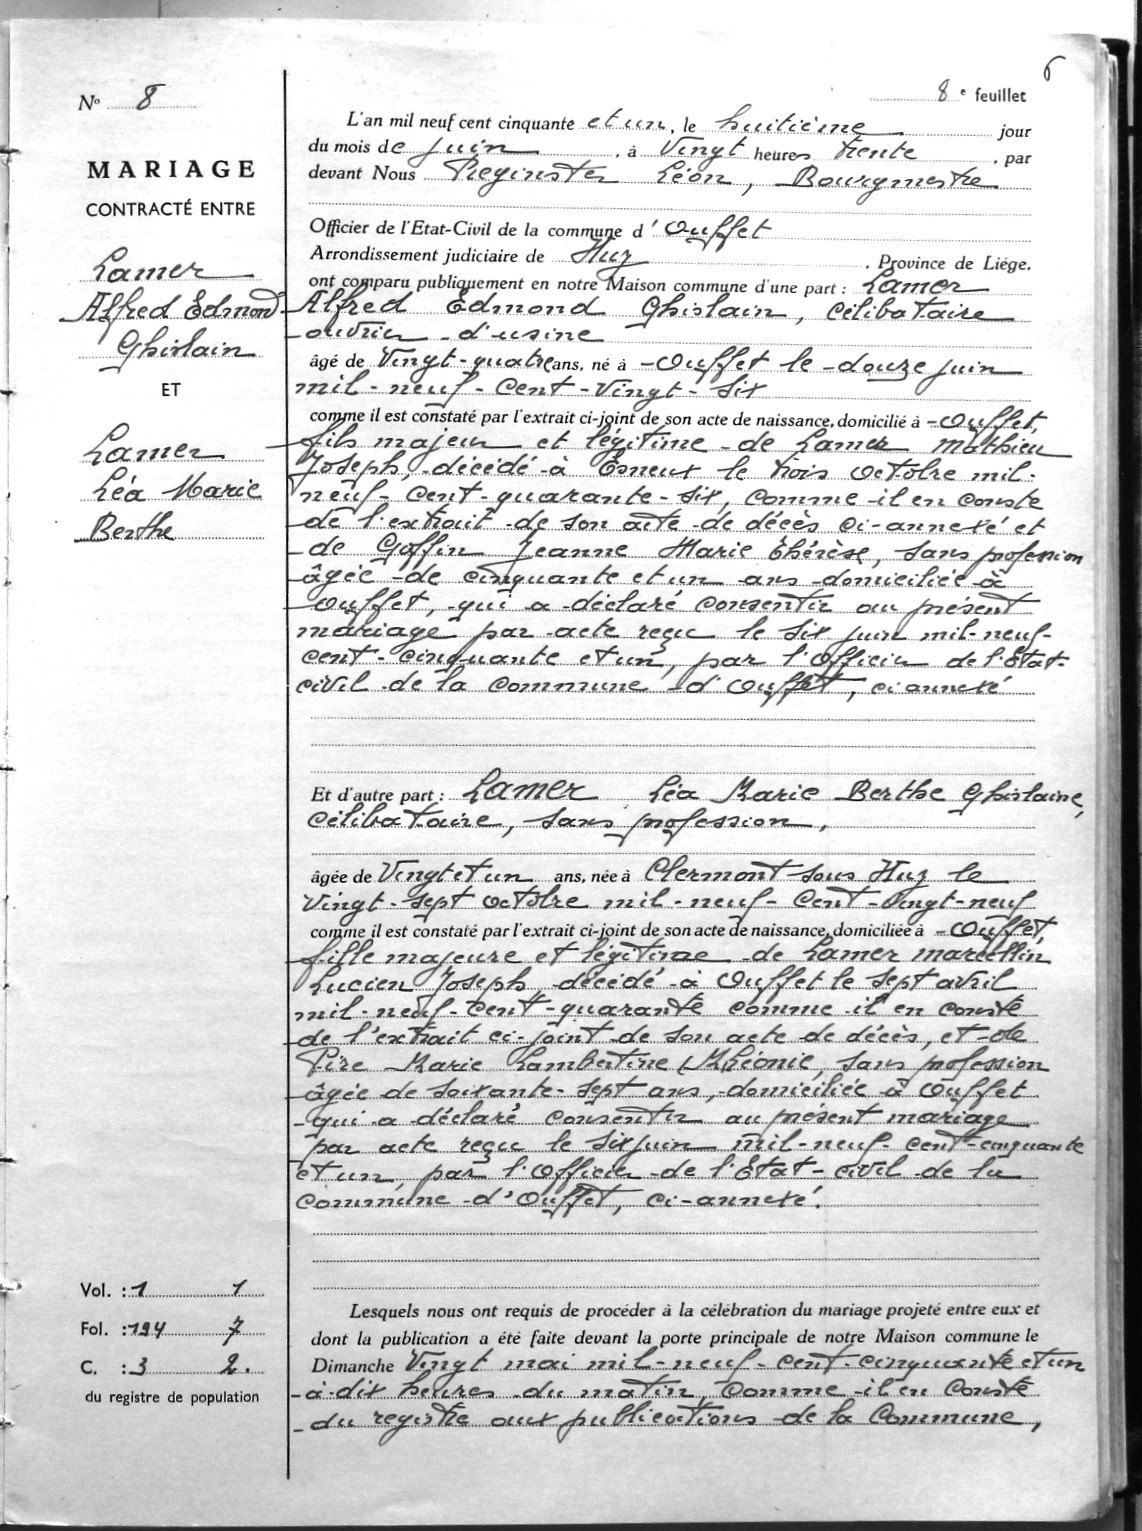 6
8 e feuillet
Nº 8
MARIAGE
CONTRACTÉ ENTRE
Lamer
Alfred Edmond
Ghislain
ET
Lamer
Léa Marie
Berthe
L'an mil neuf cent cinquante et un, le huitième jour
du mois de juin, à vingt heures trente, par
devant Nous Reginster Léon, Bourgmestre
Officier de l'Etat-Civil de la commune d'Ouffet
Arrondissement judiciaire de Huy. Province de Liége.
ont comparu publiquement en notre Maison commune d'une part : Lamer
Alfred Edmond Ghislain, célibataire
ouvrier d'usine
âgé de vingt-quatre ans, né à Ouffet le douze juin
mil-neuf-cent-vingt-six
comme il est constaté par l'extrait ci-joint de son acte de naissance, domicilié à Ouffet,
fils majeur et légitime de Lamer Mathieu
Joseph, décédé à Esneux le trois octobre mil-
neuf-cent-quarante-six, comme il en conste
de l'extrait de son acte de décès ci-annexé et
de Goffin Jeanne Marie Thérèse, sans profession
âgée de cinquante et un ans domiciliée à
Ouffet, qui a déclaré consentir au présent
mariage par acte reçu le six juin mil-neuf-
cent-cinquante et un, par l'Officier de l'Etat-
civil de la commune d'Ouffet, ci annexé
Et d'autre part : Lamer Léa Marie Berthe Ghislaine,
célibataire, sans profession,
âgée de vingt et un ans, née à Clermont sous Huy le
vingt-sept octobre mil-neuf-cent-vingt-neuf
comme il est constaté par l'extrait ci-joint de son acte de naissance, domiciliée à Ouffet,
fille majeure et légitime de Lamer Marcellin
Lucien Joseph, décédé à Ouffet le sept avril
mil-neuf-cent-quarante comme il en conste
de l'extrait ci-joint de son acte de décès, et de
Pire Marie Lambertine Léonie, sans profession
âgée de soixante-sept ans, domiciliée à Ouffet
qui a déclaré consentir au présent mariage
par acte reçu le six juin mil-neuf-cent-cinquante
et un, par l'Officier de l'Etat-civil de la
commune d'Ouffet, ci-annexé.
Vol. : 1 1
Fol. : 194 7
C. : 3 2.
du registre de population
Lesquels nous ont requis de procéder à la célébration du mariage projeté entre eux et
dont la publication a été faite devant la porte principale de notre Maison commune le
Dimanche vingt mai mil-neuf-cent-cinquante et un
à dix heures du matin, comme il en conste
du registre aux publications de la Commune,